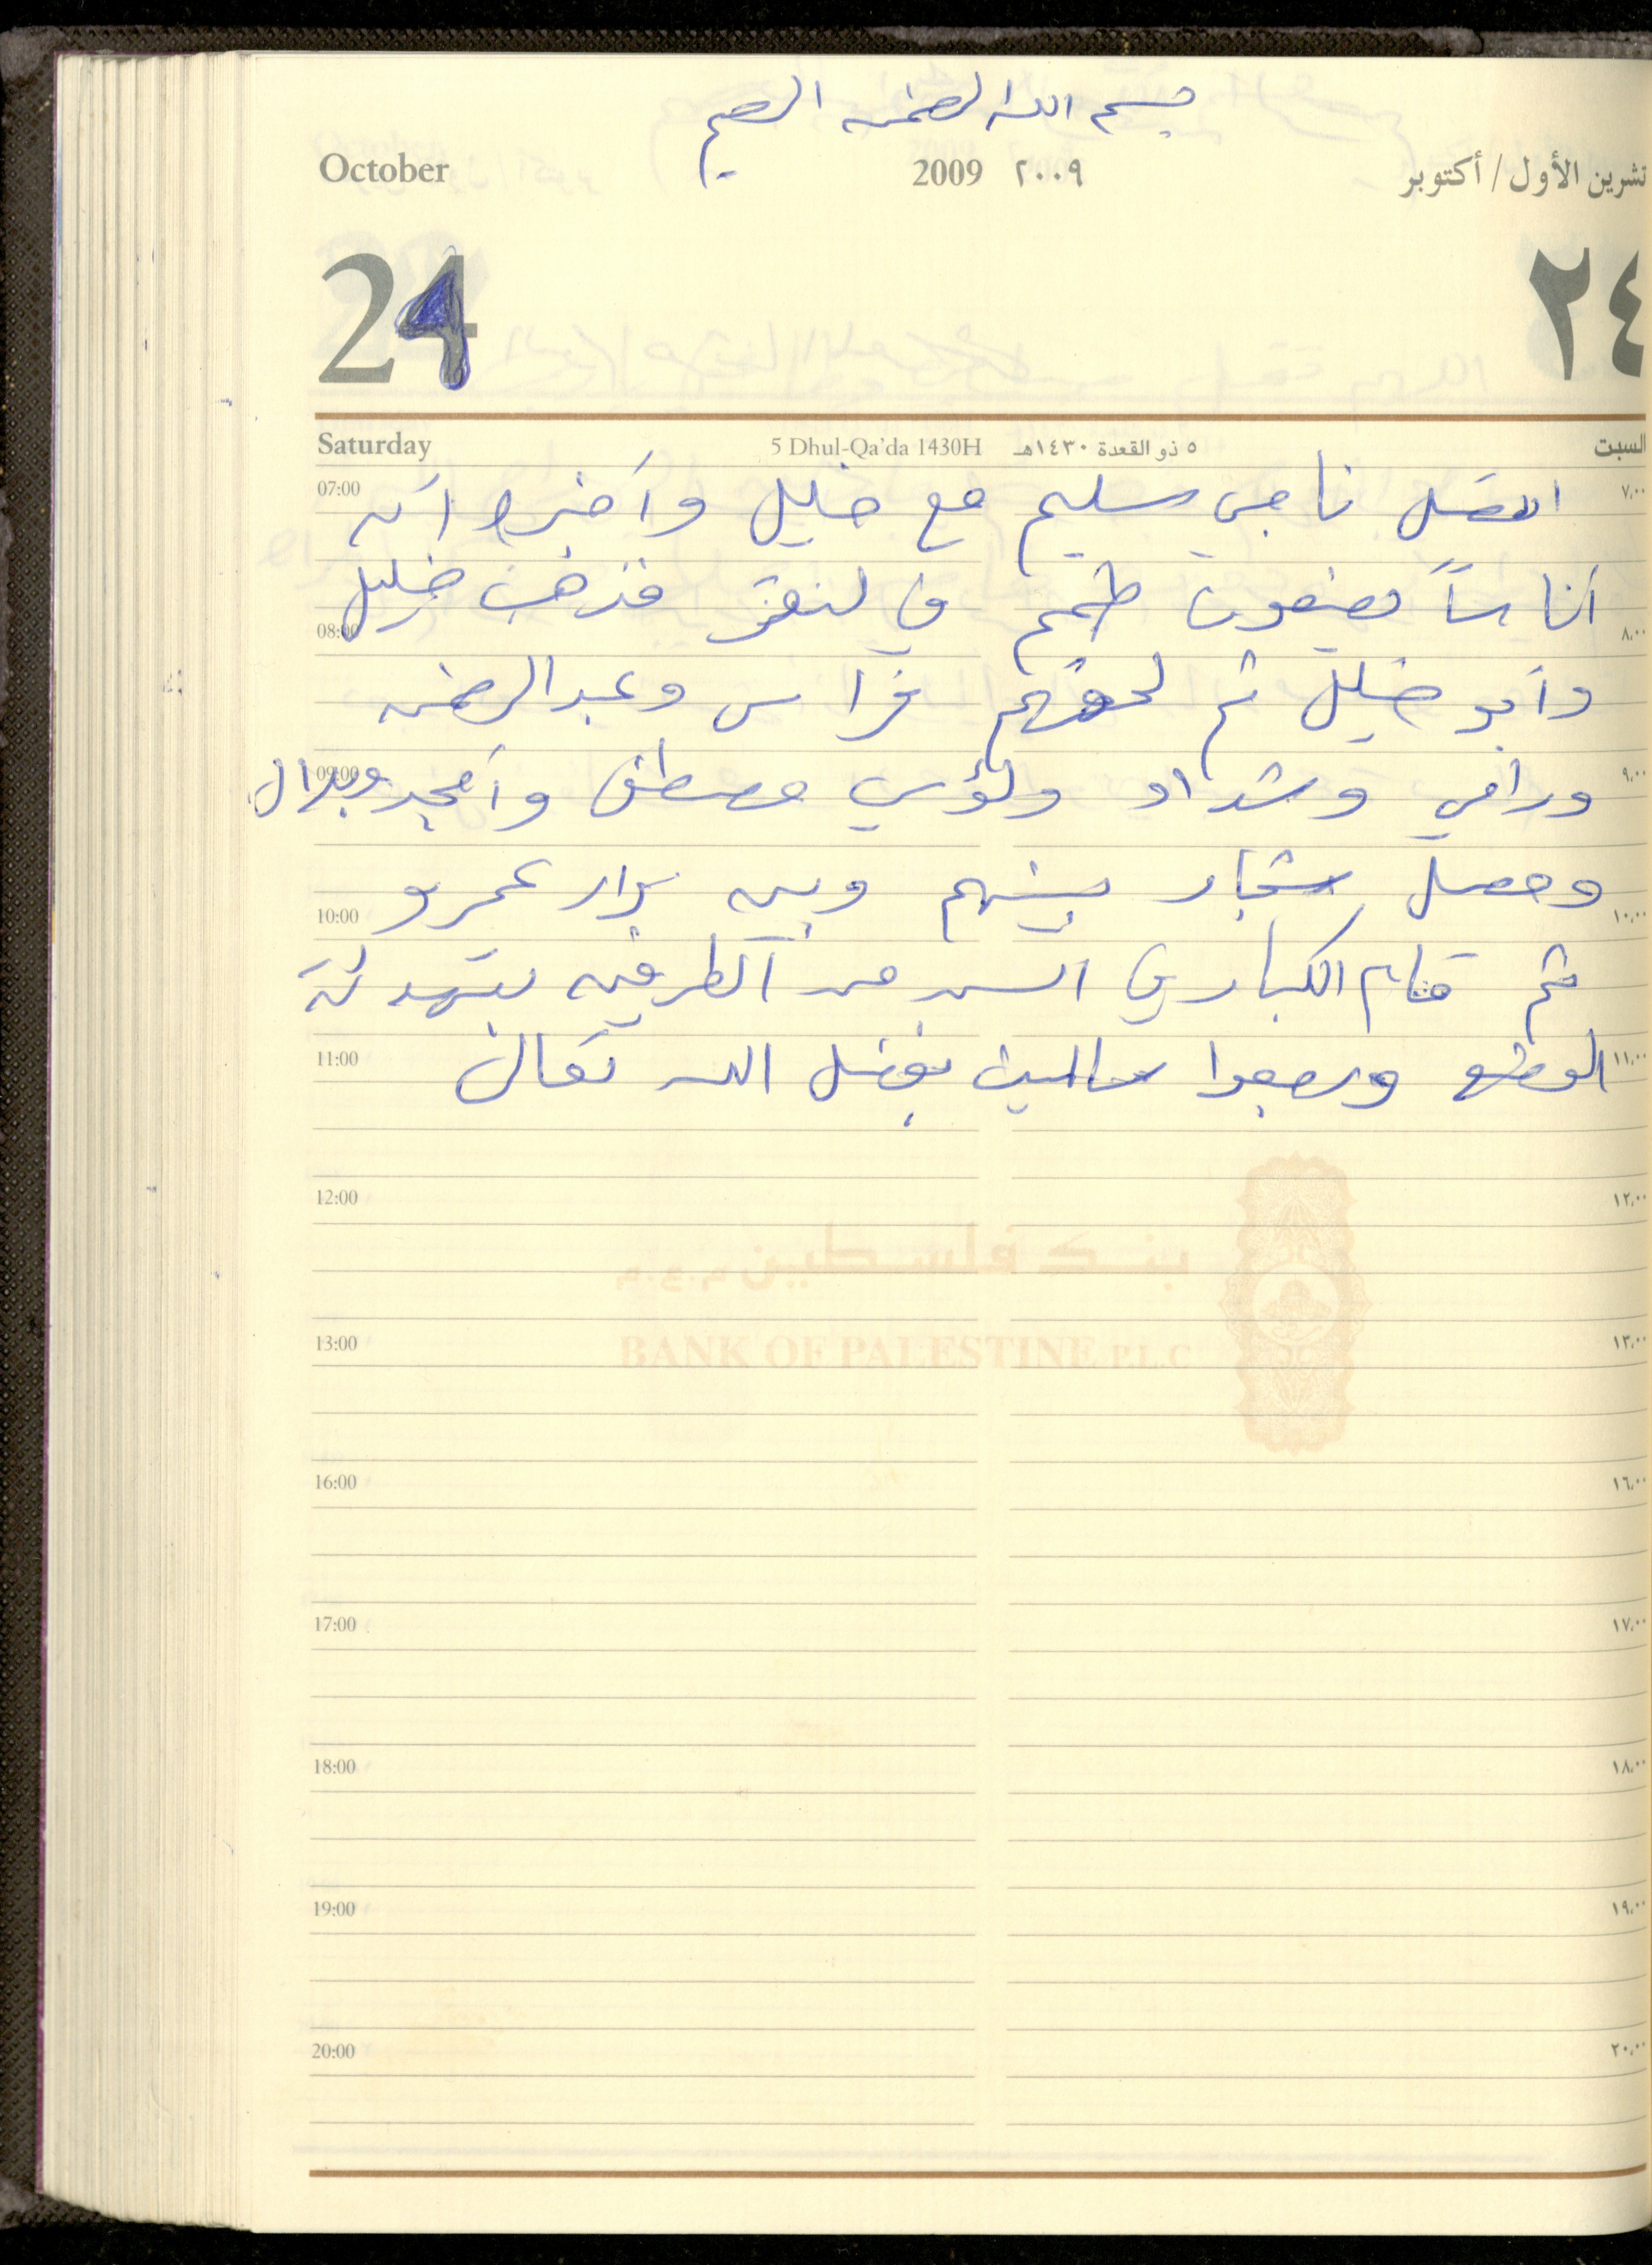 بسم الله الرحمن الرحيم
October 2009 ٢٠٠٩ تشرين الأول / أكتوبر
24 ٢٤
Saturday 5 Dhul-Qa'da 1430H ٥ ذو القعدة ١٤٣٠هـ السبت
07:00 اتصل ناجي سليم مع خليل وأخبره أن ٧,٠٠
أناساً يضعون طمم في فذهب خليل
08:00 ٨,٠٠
وأبو خليل ثم لحقهم فراس وعبد الرحمن
09:00 ورامي وشداد ولؤي مصطفى وأمجد وبلال ٩,٠٠
وحصل شجار بينهم وبين عمرو
10:00 ١٠,٠٠
ثم قام الكبار في السن من الطرفين بتهدئة
11:00 الوضع ورجعوا سالمين بفضل الله تعالى ١١,٠٠
12:00 ١٢,٠٠
بنك فلسطين م.ع.م
BANK OF PALESTINE P.L.C
13:00 ١٣,٠٠
16:00 ١٦,٠٠
17:00 ١٧,٠٠
18:00 ١٨,٠٠
19:00 ١٩,٠٠
20:00 ٢٠,٠٠